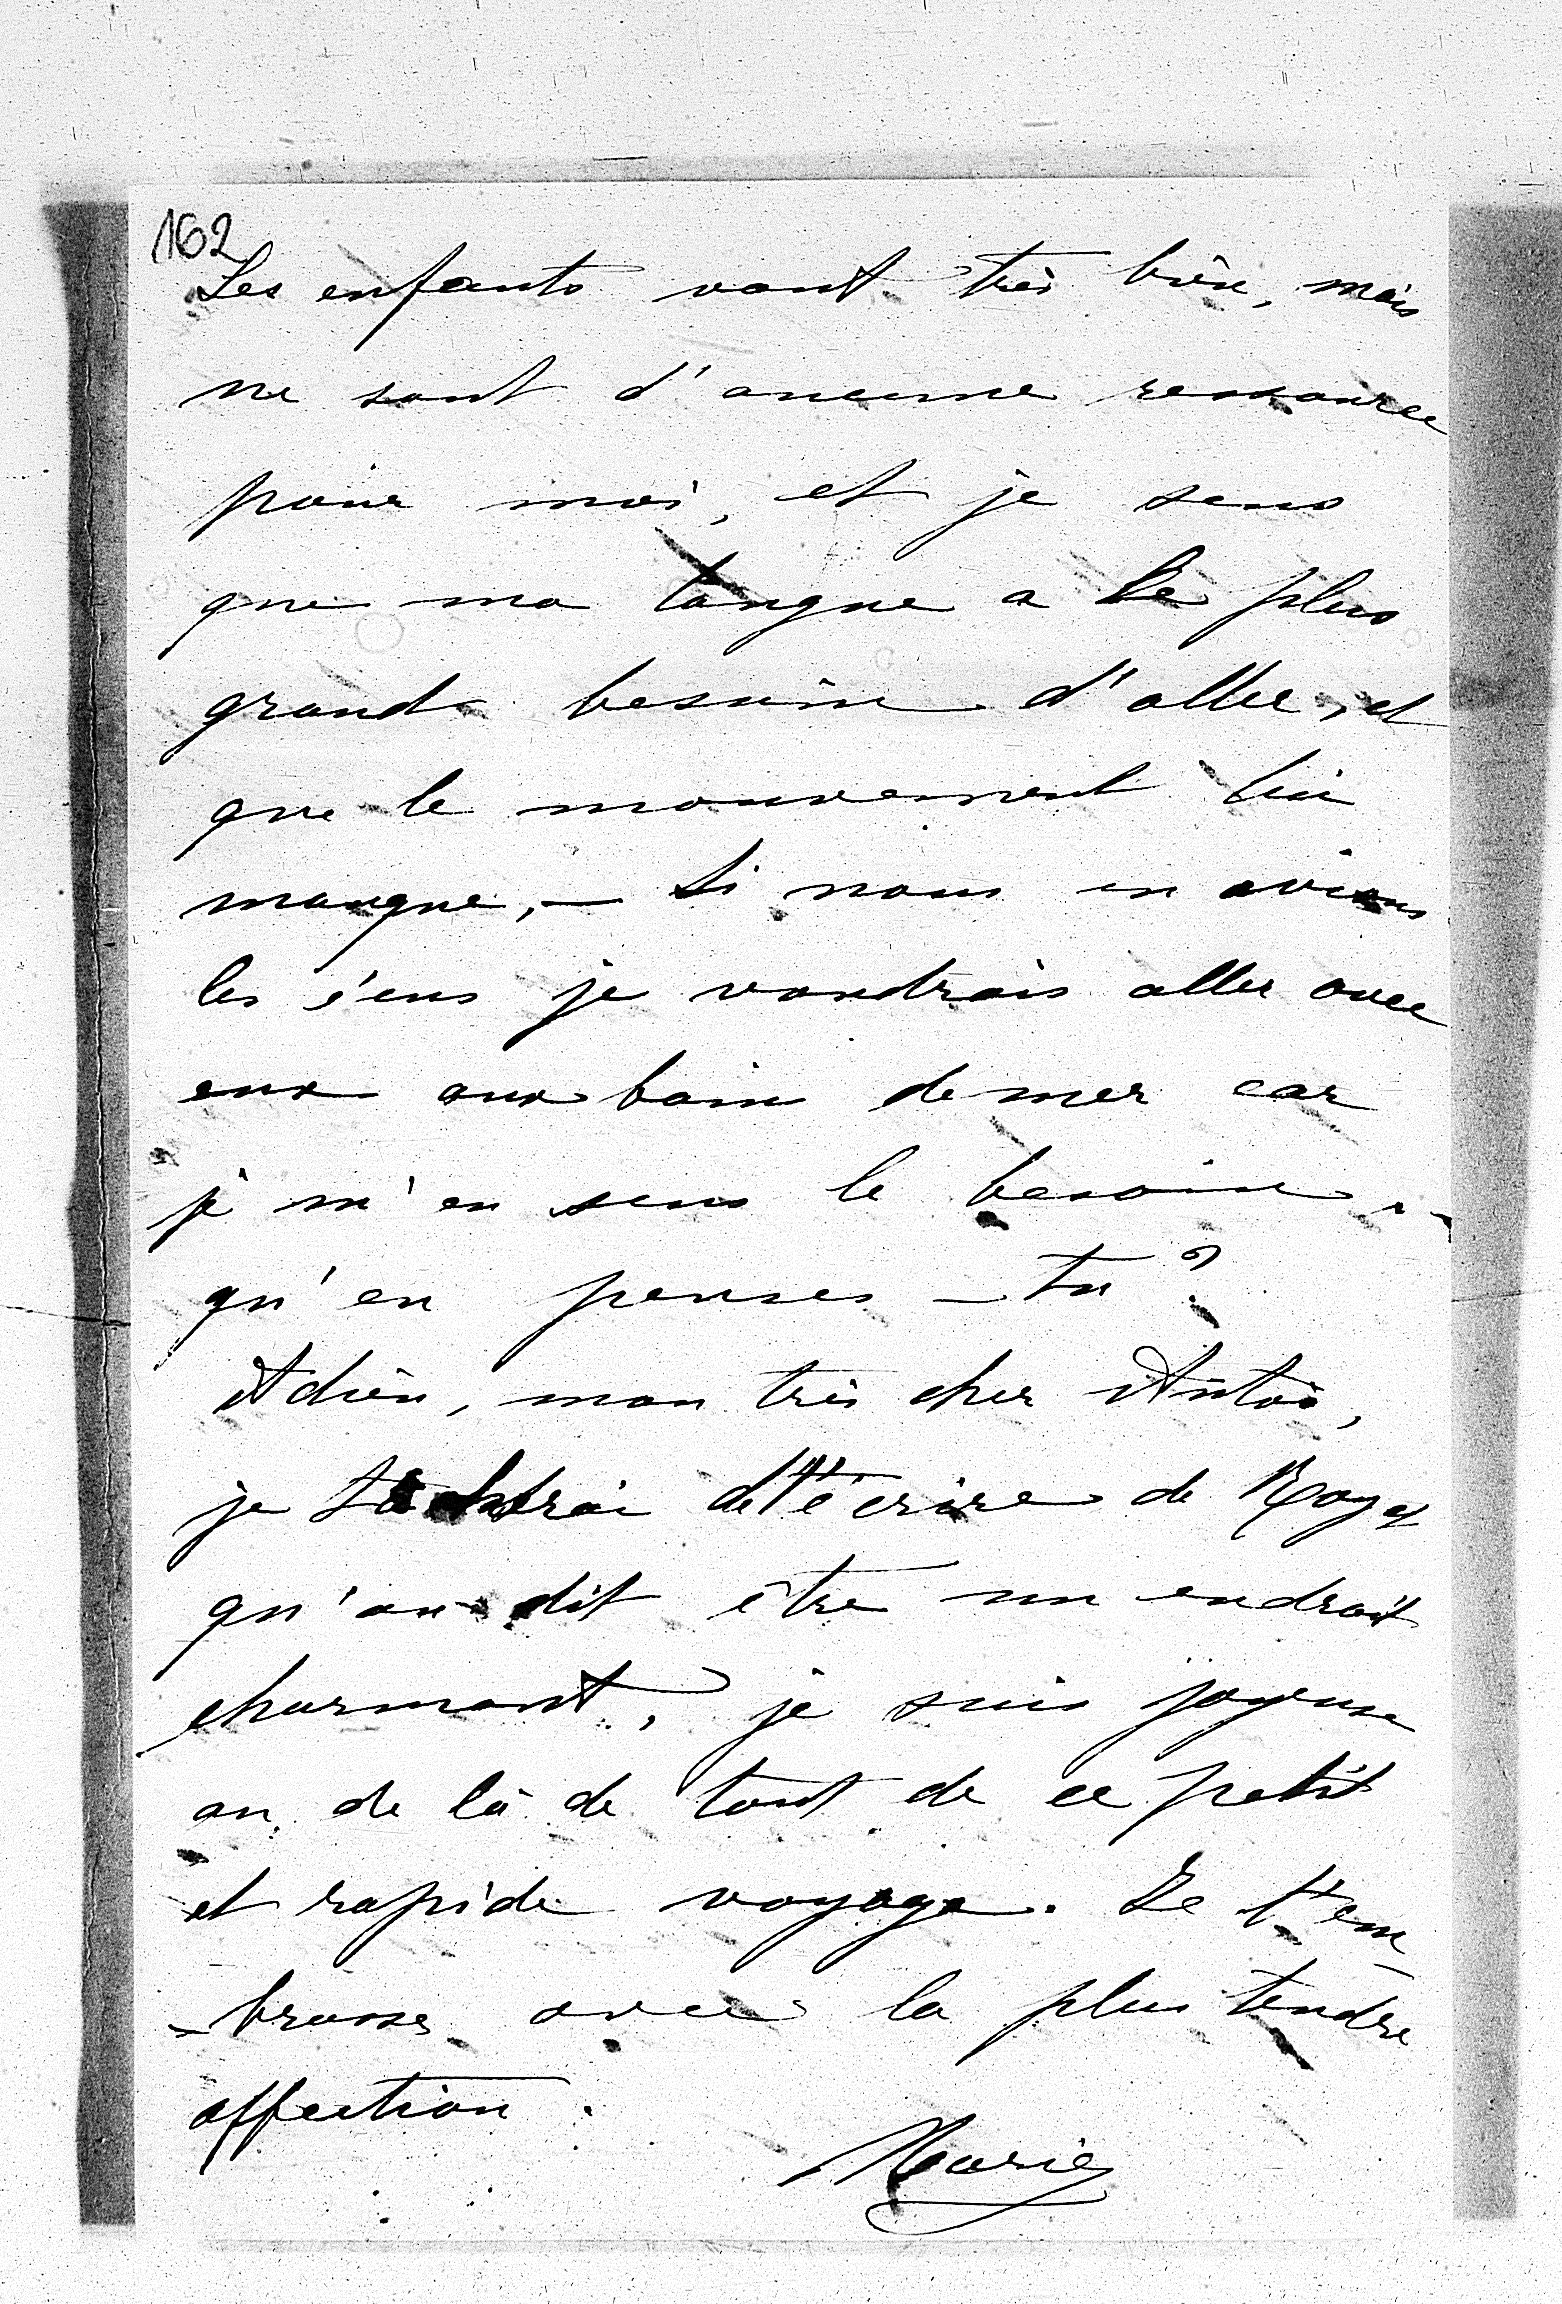 162
Les enfants vont très bien, mais
ne sont d'aucune ressource
pour moi, et je sens
que ma langue a le plus
grand besoin d'aller, et
que le mouvement lui
manque, — Si nous en avions
les s'ens je voudrais aller avec
eux aux bain de mer car
je m'en sens le besoin..
qu'en penses - tu ?
Adieu, mon très cher Antoi,
je tâcherai de t'écrire de Royat
qu'on dit être un endroit
charmant, je suis joyeuse
au de là de tout de ce petit
et rapide voyage. Je t'em
-brasse avec la plus tendre
affection.
Marie